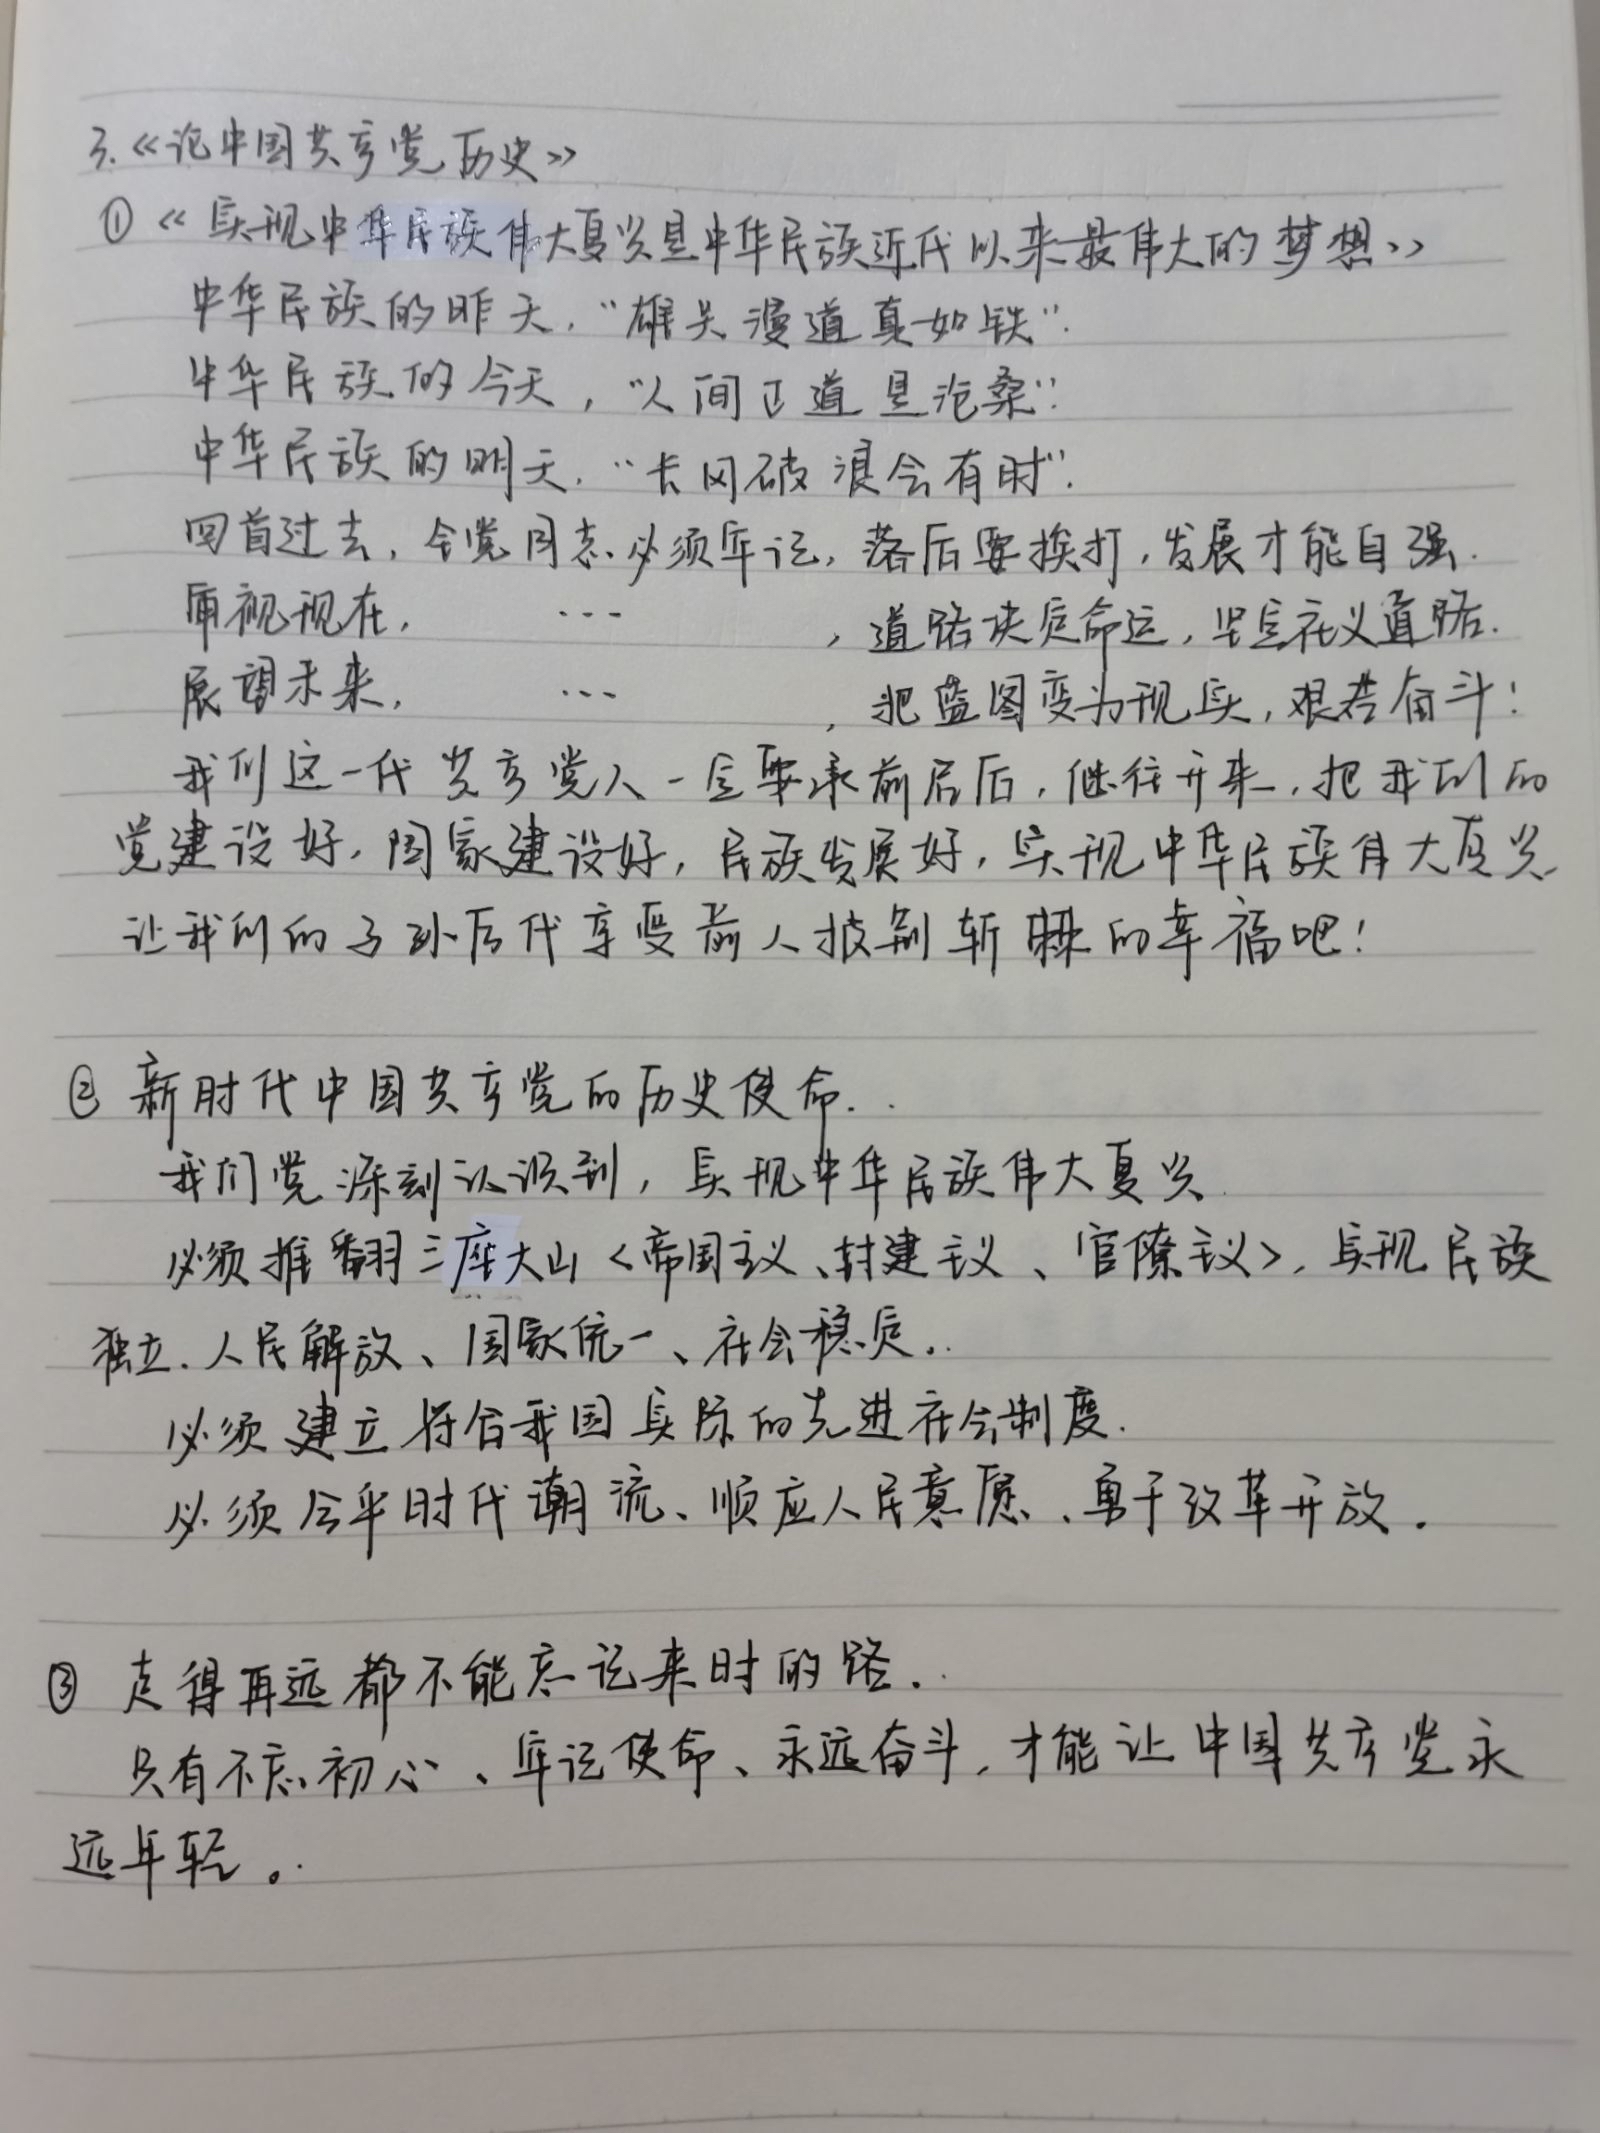 3.《论中国共产党历史》
①《实现中华民族伟大复兴是中华民族近代以来最伟大的梦想》
中华民族的昨天，“雄关漫道真如铁”.
中华民族的今天，“人间正道是沧桑”.
中华民族的明天，“长风破浪会有时”.
回首过去，全党同志必须牢记，落后要挨打，发展才能自强.
审视现在，...，道路决定命运，坚定社义道路.
展望未来，...，把蓝图变为现实，艰苦奋斗！
我们这一代共产党人一定要承前启后，继往开来，把我们的
党建设好，国家建设好，民族发展好，实现中华民族伟大复兴
让我们的子孙后代享受前人披荆斩棘的幸福吧！
② 新时代中国共产党的历史使命..
我们党深刻认识到，实现中华民族伟大复兴
必须推翻三座大山<帝国主义、封建主义、官僚主义>，实现民族
独立、人民解放、国家统一、社会稳定..
必须建立符合我国实际的先进社会制度.
必须合乎时代潮流、顺应人民意愿、勇于改革开放.
③ 走得再远都不能忘记来时的路.
只有不忘初心、牢记使命、永远奋斗，才能让中国共产党永
远年轻。